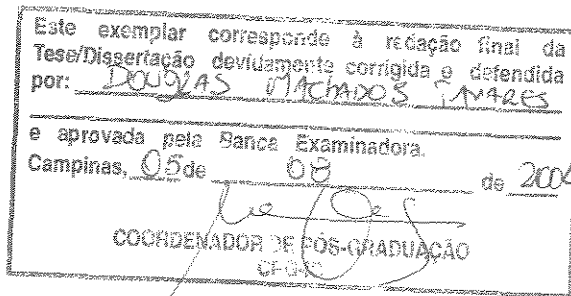 Este exemplar corresponde à redação final da
Tese/Dissertação devidamente corrigida e defendida
por: DOUGLAS MACHADO TAVARES
e aprovada pela Banca Examinadora.
Campinas, 05 de 08 de
COORDENADOR DE PÓS-GRADUAÇÃO